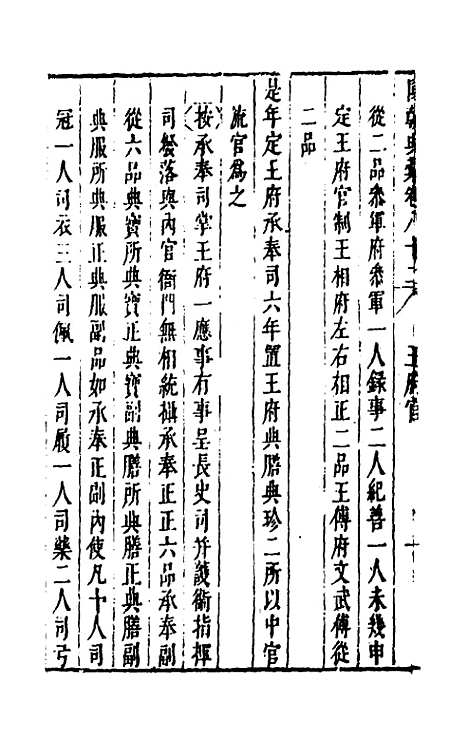 國朝典彙卷八十二 王府官
從二品叅軍府叅軍一人録事二人紀善一人未幾申
定王府官制王相府左右相正二品王傅府文武傅從
二品
是年定王府承奉司六年置王府典膳典珍二所以中官
流官爲之
按承奉司掌王府一應事有事呈長史司并護衛指揮
司發落與内官衙門無相統攝承奉正正六品承奉副
從六品典寳所典寳正典寳副典膳所典膳正典膳副
典服所典服正典服副品如承奉正副内使凡十人司
冠一人司衣三人司佩一人司履一人司藥二人司弓